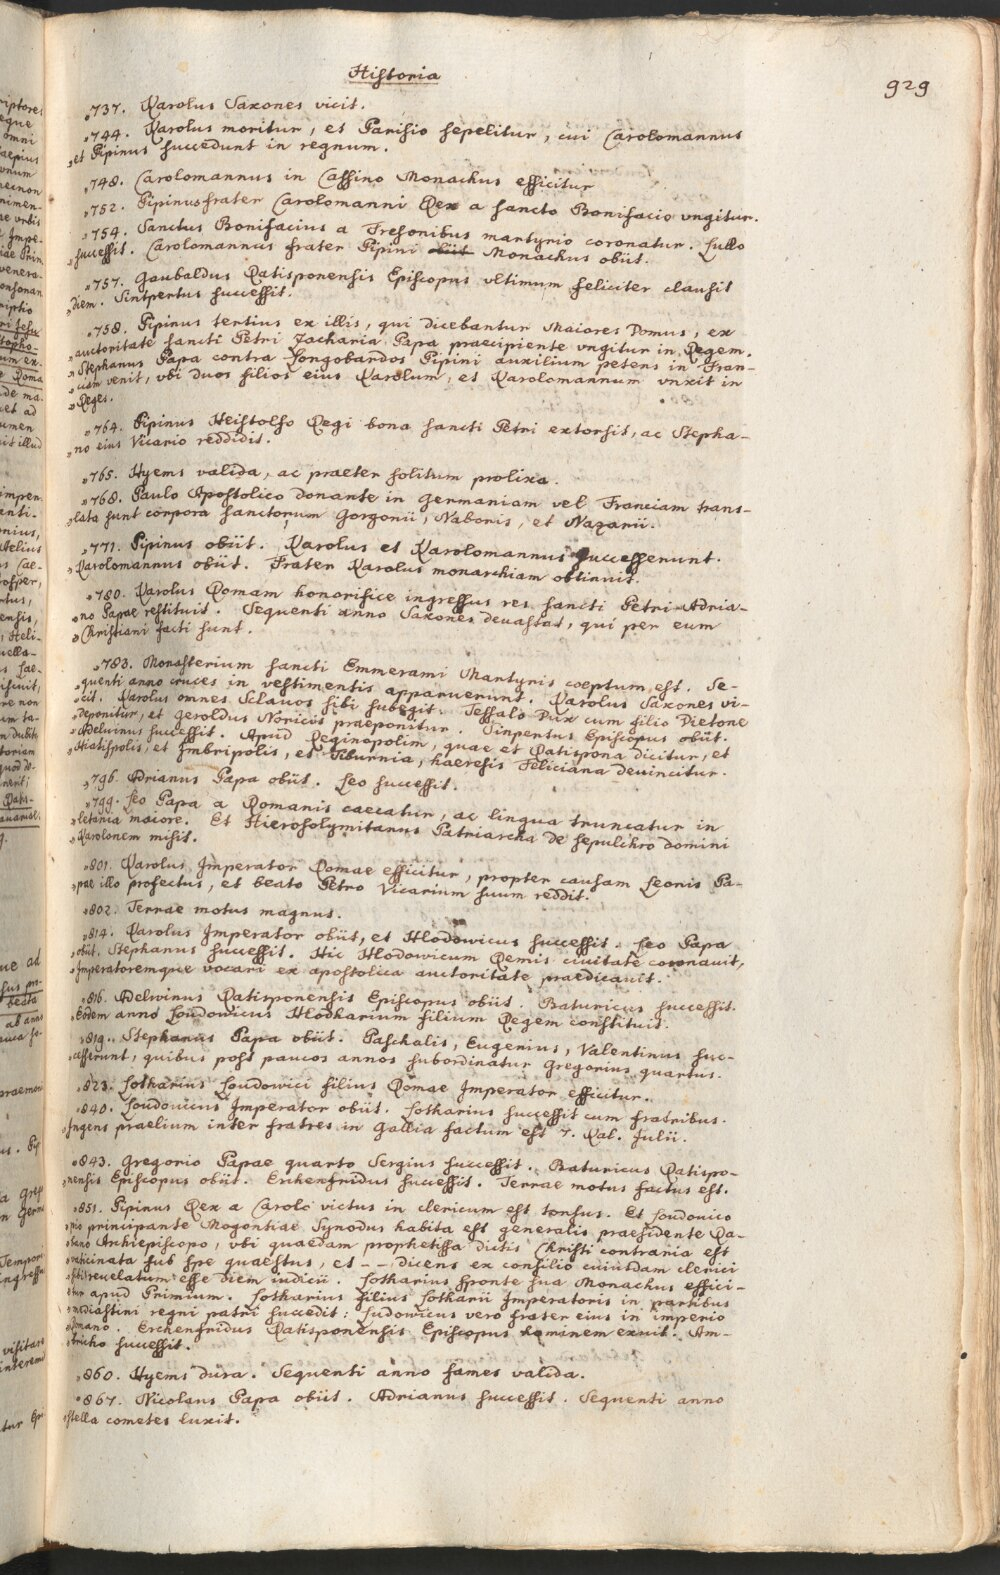 Historia
929
„737. Karolus Saxones vicit.
„744. Karolus moritur, et Parisio sepelitur, cui Carolomannus
„et Pipinus succedunt in regnum.
„748. Carolomannus in Cassino Monachus efficitur
„752. Pipinus frater Carolomanni Rex a sancto Bonifacio vngitur.
„754. Sanctus Bonifacius a Fresonibus martyrio coronatur. Lullo
„successit. Carolomannus frater Pipini obiit Monachus obiit.
„757. Gaubaldus Ratisponensis Episcopus vltimum feliciter clausit
„diem. Sintpertus successit.
„758. Pipinus tertius ex illis, qui dicebantur Maiores Domus, ex
„auctoritate sancti Petri Zacharia Papa praecipiente vngitur in Regem.
„Stephanus Papa contra Longobardos Pipini auxilium petens in Fran-
„ciam venit, vbi duos filios eius Karolum, et Karolomannum vnxit in
„Reges.
„764. Pipinus Heistolfo Regi bona sancti Petri extorsit, ac Stepha-
„no eius Vicario reddidit.
„765. Hyems valida, ac praeter solitum prolixa.
„768. Paulo Apostolico donante in Germaniam vel Franciam trans-
„lata sunt corpora sanctorum Gorgonii, Naboris, et Nazarii.
„771. Pipinus obiit. Karolus et Karolomannus successerunt.
„Karolomannus obiit. Frater Karolus monarchiam obtinuit.
„780. Karolus Romam honorifice ingressus res sancti Petri Adria-
„no Papae restituit. Sequenti anno Saxones deuastat, qui per eum
„Christiani facti sunt.
„783. Monasterium sancti Emmerami Martyris coeptum est. Se-
„quenti anno cruces in vestimentis apparuerunt. Karolus Saxones vi-
„cit. Karolus omnes Sclauos sibi subegit. Tessalo Dux cum filio Dietone
„deponitur, et Geroldus Noricis praeponitur. Sinpertus Episcopus obiit.
„Adelwinus successit. Apud Reginopolim, quae et Ratispona dicitur, et
„Hiatispolis, et Imbripolis, et Tiburnia, haeresis Feliciana deuincitur.
„796. Adrianus Papa obiit. Leo successit.
„799. Leo Papa a Romanis caecatur, ac lingua truncatur in
„letania maiore. Et Hierosolymitanus Patriarcha de sepulchro domini
„Karolonem misit.
„801. Karolus Imperator Romae efficitur, propter causam Leonis Pa-
„pae illo profectus, et beato Petro Vicarium suum reddit.
„802. Terrae motus magnus.
„814. Karolus Imperator obiit, et Hlodowicus successit. Leo Papa
„obiit. Stephanus successit. Hic Hlodowicum Remis ciuitate coronauit,
„Imperatoremque vocari ex apostolica auctoritate praedicauit.
„816. Adelwinus Ratisponensis Episcopus obiit. Baturicus successit.
„Eodem anno Loudowicus Hlodharium filium Regem constituit.
„819. Stephanus Papa obiit. Paschalis, Eugenius, Valentinus suc-
„cesserunt, quibus post paucos annos subordinatur Gregorius quartus.
„823. Lotharius Loudowici filius Romae Imperator efficitur.
„840. Loudovicus Imperator obiit. Lotharius successit cum fratribus.
„Ingens praelium inter fratres in Gallia factum est 7. Kal. Julii.
„843. Gregorio Papae quarto Sergius successit. Baturicus Ratispo-
„nensis Episcopus obiit. Erchenfridus successit. Terrae motus factus est.
„851. Pipinus Rex a Carolo victus in clericum est tonsus. Et Loudouico
„pio principante Mogontiae Synodus habita est generalis praesidente Ra-
„bano Archiepiscopo, vbi quaedam prophetissa dictis Christi contraria est
„vaticinata sub spe quaestus, et – – dicens ex consilio cuiusdam clerici
„sibi reuelatum esse diem iudicii. Lotharius sponte sua Monachus effici-
„tur apud Primium. Lotharius filius Lotharii Imperatoris in partibus
„mediastini regni patri succedit: Ludowicus vero frater eius in imperio
„Romano. Erchenfridus Ratisponensis Episcopus hominem exuit. Am-
„bricho successit.
„860. Hyems dura. Sequenti anno fames valida.
„867. Nicolaus Papa obiit. Adrianus successit. Sequenti anno
„stella cometes luxit.